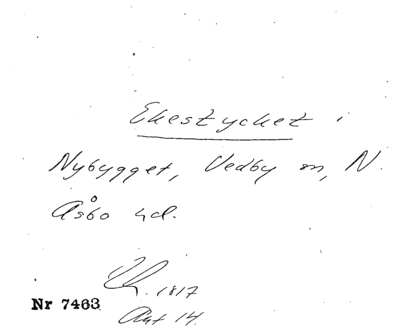 Ekestycket i
Nybygget, Vedby sn, N.
Åsbo hd.
1817
Akt 14.
Nr 7463